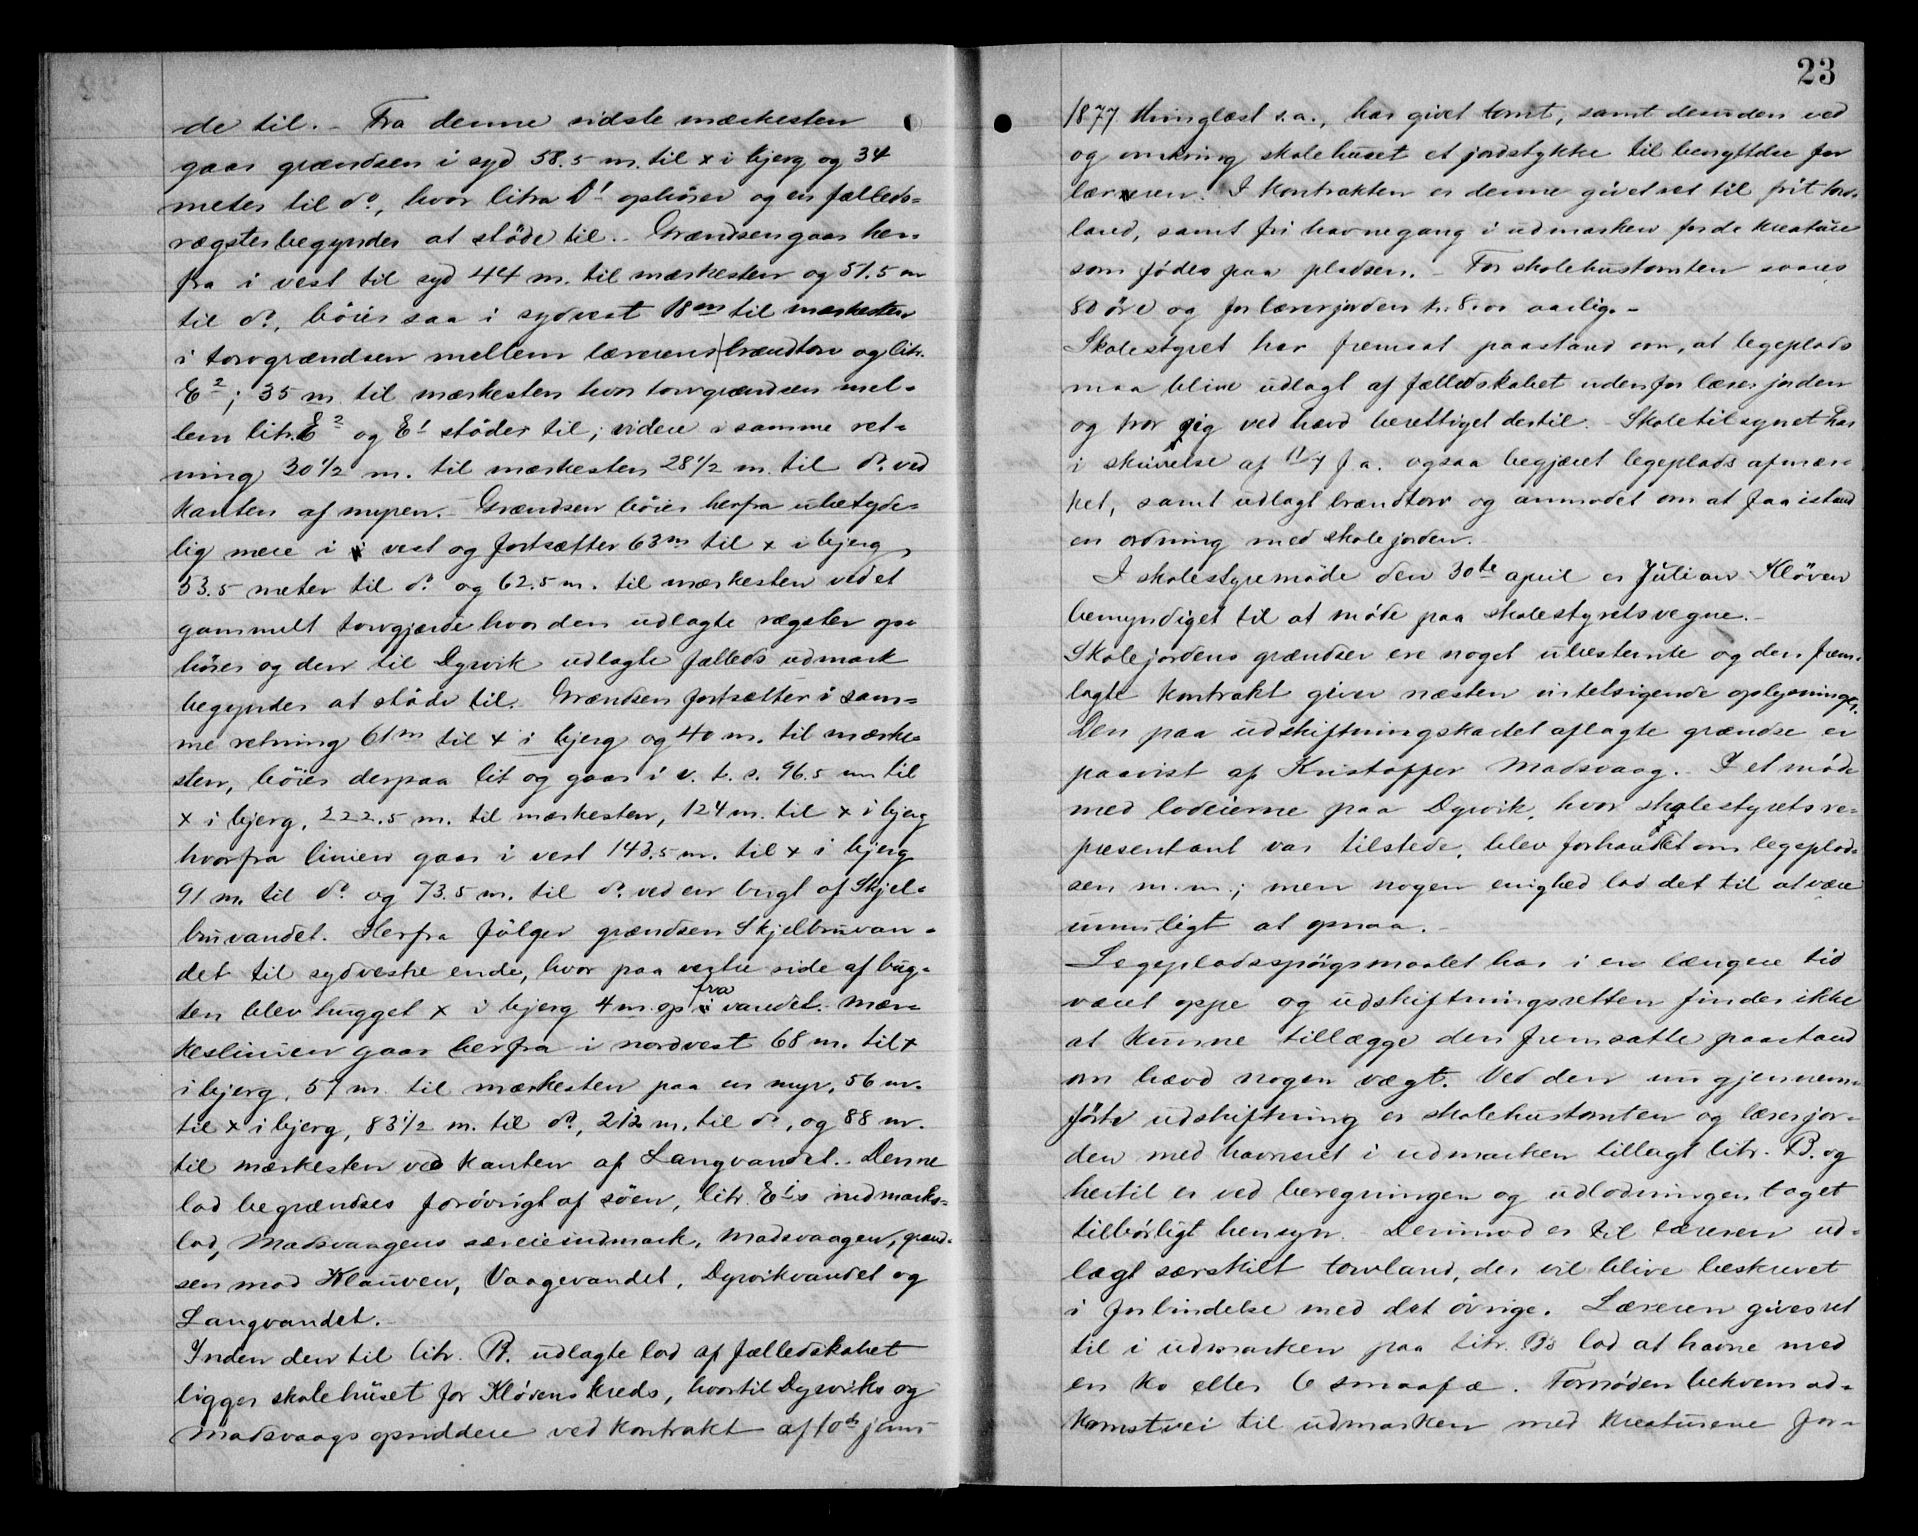 de til. – Fra denne sidste mærkesten
gaar grændsen i syd 58.5 m. til x i bjerg og 34
meter til do, hvor litra D¹ ophører og en fælleds-
rægster begynder at støde til. – Grændsen gaar her-
fra i vest til syd 44 m. til mærkesten og 51.5 m
til do, bøier saa i sydvest 18 m til mærkesten
i torvgrændsen mellem lærerens brændtorv og litr.
E²; 35 m til mærkesten hvor torvgrændsen mel-
lem litr. E² og E¹ støder til; videre i samme ret-
ning 30 1/2 m. til mærkesten 28 1/2 m. til do ved
kanten af myren. – Grændsen bøier herfra ubetyde-
lig mere i vest og fortsætter 63 m til x i bjerg,
33.5 meter til do og 62.5 m. til mærkesten ved et
gammelt torvgjærde hvor den udlagte rægster op-
hører og den til Dyrvik udlagte fælleds udmark
begynder at støde til. Grændsen fortsætter i sam-
me retning 61 m til x i bjerg og 40 m. til mærke-
sten, bøier derpaa lit og gaar i v. t. s. 96.5 m til
x i bjerg, 222.5 m. til mærkesten, 124 m. til x i bjerg
hvorfra linien gaar i vest 143.5 m. til x i bjerg
91 m. til do og 73.5 m. til do ved en bugt af Skjel-
bruvandet. Herfra følger grændsen Skjelbruvan-
det til sydvestre ende, hvor paa vestre side af bug-
ten blev hugget x i bjerg 4 m. op fra vandet. Mær-
keslinien gaar herfra i nordvest 68 m. til x
i bjerg, 57 m. til mærkesten paa en myr, 56 m.
til x i bjerg, 83 1/2 m. til do, 212 m. til do, og 88 m.
til mærkesten ved kanten af Langvandet. Denne
lod begrændses forøvrigt af søen, litr. E¹s indmarks-
lod, Madsvaagens særeieindmark, Madsvaagen, grænd-
sen mod Kløuven, Vaagevandet, Dyrvikvandet og
Langvandet. –
Inden den til litr. B. udlagte lod af fælledskabet
ligger skolehuset for Kløvens kreds, hvortil Dyrviks og
Madsvaags opsiddere ved kontrakt af 10de juni
23
1877 thinglæst s.a., har givet tomt, samt desuden ved
og omkring skolehuset et jordstykke til benyttelse for
læreren. I kontrakten er denne givet ret til frit torv-
land, samt fri havnegang i udmarken for de kreature
som fødes paa pladsen. – For skolehustomten svares
80 øre og for lærerjorden kr. 8.00 aarlig. –
Skolestyret har fremsat paastand om, at legeplads
maa blive udlagt af fælledskabet udenfor lærerjorden
og tror sig ved hævd berettiget dertil. – Skoletilsynet har
i skrivelse af 17/7 f a. ogsaa begjæret legeplads afmær-
ket, samt udlagt brændtorv og anmodet om at faa istand
en ordning med skolejorden.
I skolestyremøde den 30te april er Julian Kløven
bemyndiget til at møde paa skolestyrets vegne. –
Skolejordens grændser ere noget ubestemte og den frem-
lagte kontrakt giver næsten intetsigende oplysninger.
Den paa udskiftningskartet aflagte grændse er
paavist af Kristoffer Madsvaag. I et møde
med lodeierne paa Dyrvik, hvor skolestyrets re-
præsentant var tilstede, blev forhandlet om legeplad-
sen m. m.; men nogen enighed lod det til at være
umuligt at opnaa. –
Legepladsspørgsmaalet har i en længere tid
været oppe og udskiftningsretten finder ikke
at kunne tillægge den fremsatte paastand
om hævd nogen vægt. Ved den nu gjennem-
førte udskiftning er skolehustomten og lærerjor-
den med havneret i udmarken tillagt litr. B. og
hertil er ved beregningen og udlodningen taget
tilbørligt hensyn. Derimod er til læreren ud-
lagt særskilt torvland, der vil blive beskrevet
i forbindelse med det øvrige. Læreren gives ret
til i udmarken paa litr. Bs lod at havne med
en ko eller 6 smaafæ. Fornøden bekvem ad-
komstvei til udmarken med kreaturene for-